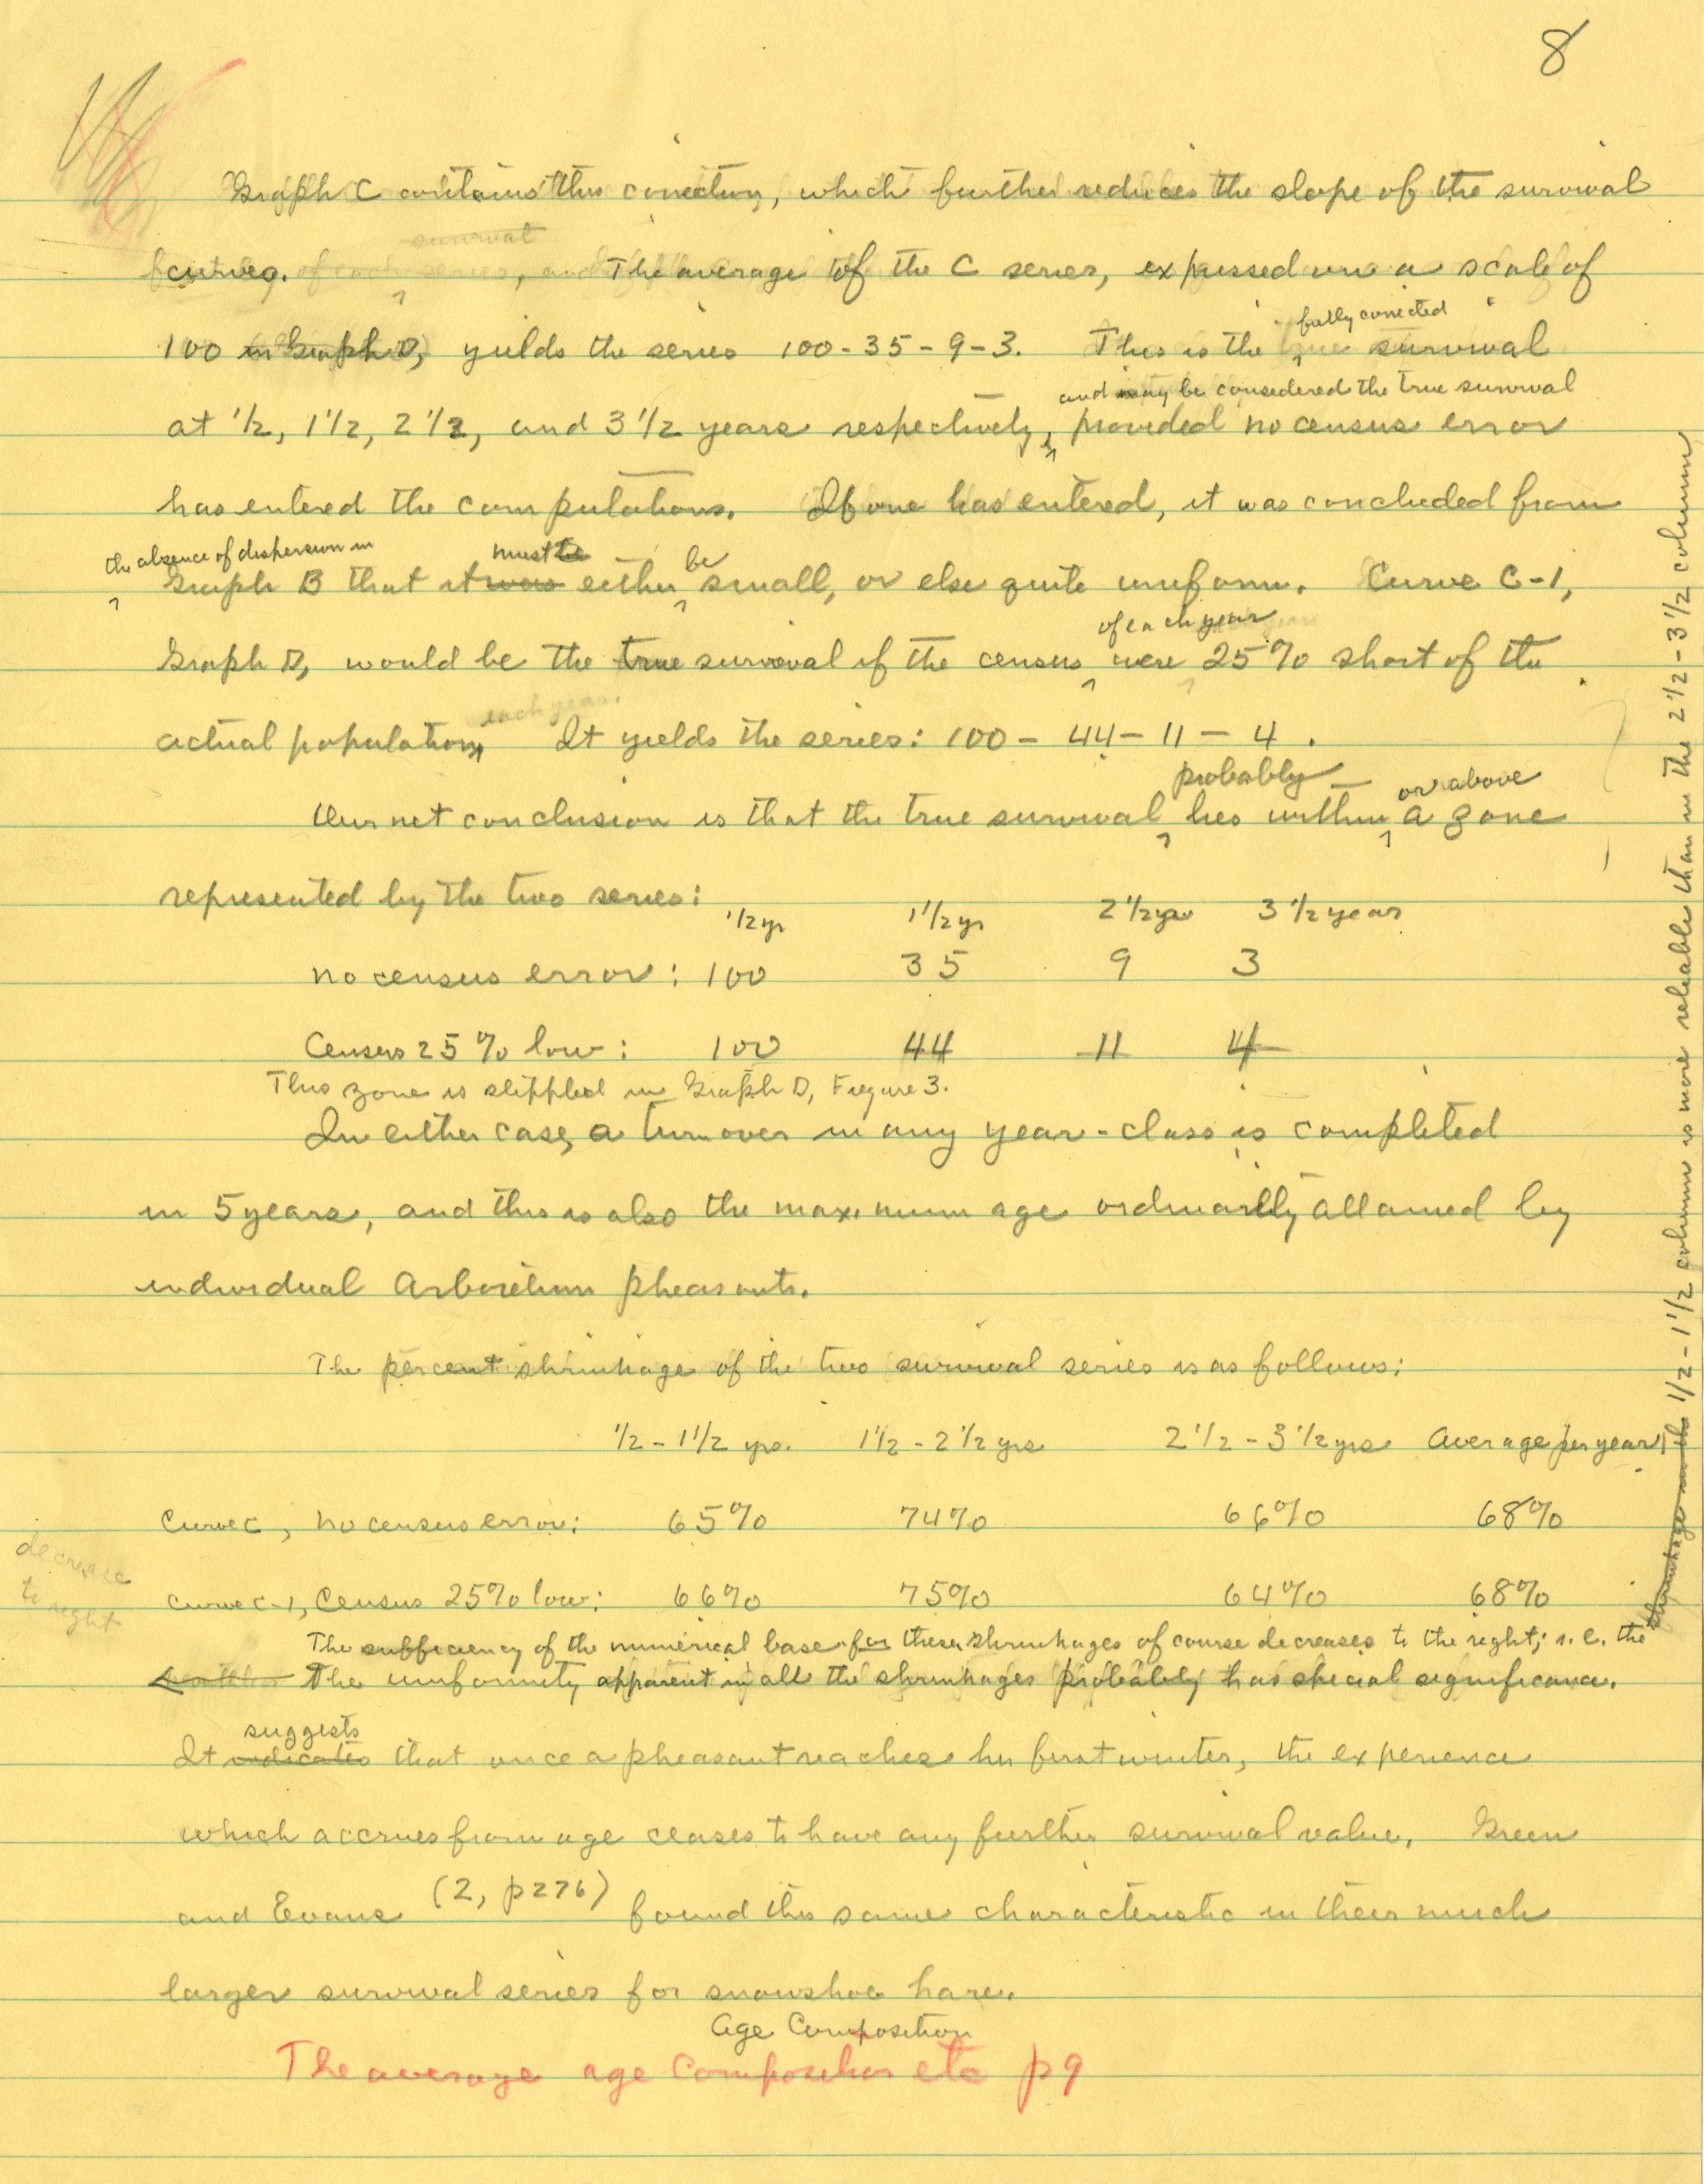 8
Graph C contains this correction, which further reduces the slope of the survival
survival
curves. The average of the C series, expressed on a scale of
fully corrected
100 in Graph D, yields the series 100-35-9-3. This is the survival
and may be considered the true survival
at 1/2, 1 1/2, 2 1/2, and 3 1/2 years respectively, provided no census error
has entered the computations. If one has entered, it was concluded from
the absence of dispersion in must be be
Graph B that it was either small, or else quite uniform. Curve C-1,
of each year
Graph D, would be the true survival if the census were 25% short of the
each year.
actual population. It yields the series: 100 - 44 - 11 - 4.
probably or above
Our net conclusion is that the true survival lies within a zone
represented by the two series:
1/2 yr 1 1/2 yr 2 1/2 yrs 3 1/2 years
no census error: 100 35 9 3
Census 25% low: 100 44 11 4
This zone is stippled in Graph D, Figure 3.
In either case, a turnover in any year-class is completed
in 5 years, and this is also the maximum age ordinarily attained by
individual Arboretum pheasants.
The percent shrinkage of the two survival series is as follows:
1/2 - 1 1/2 yrs. 1 1/2 - 2 1/2 yrs 2 1/2 - 3 1/2 yrs Average per year
Curve C, no census error: 65% 74% 66% 68%
decrease
to right
curve C-1, Census 25% low: 66% 75% 64% 68%
The sufficiency of the numerical base for these shrinkages of course decreases to the right; i.e. the
shrinkage in the 1/2 - 1 1/2 column is more reliable than in the 2 1/2 - 3 1/2 column
The uniformity apparent in all the shrinkages probably has special significance.
suggests
It indicates that once a pheasant reaches his first winter, the experience
which accrues from age ceases to have any further survival value. Green
and Evans (2, p276) found this same characteristic in their much
larger survival series for snowshoe hare.
Age Composition
The average age composition etc p9